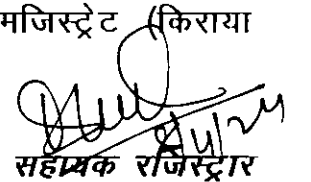 मजिस्ट्रेट (किराया
सहायक रजिस्ट्रार